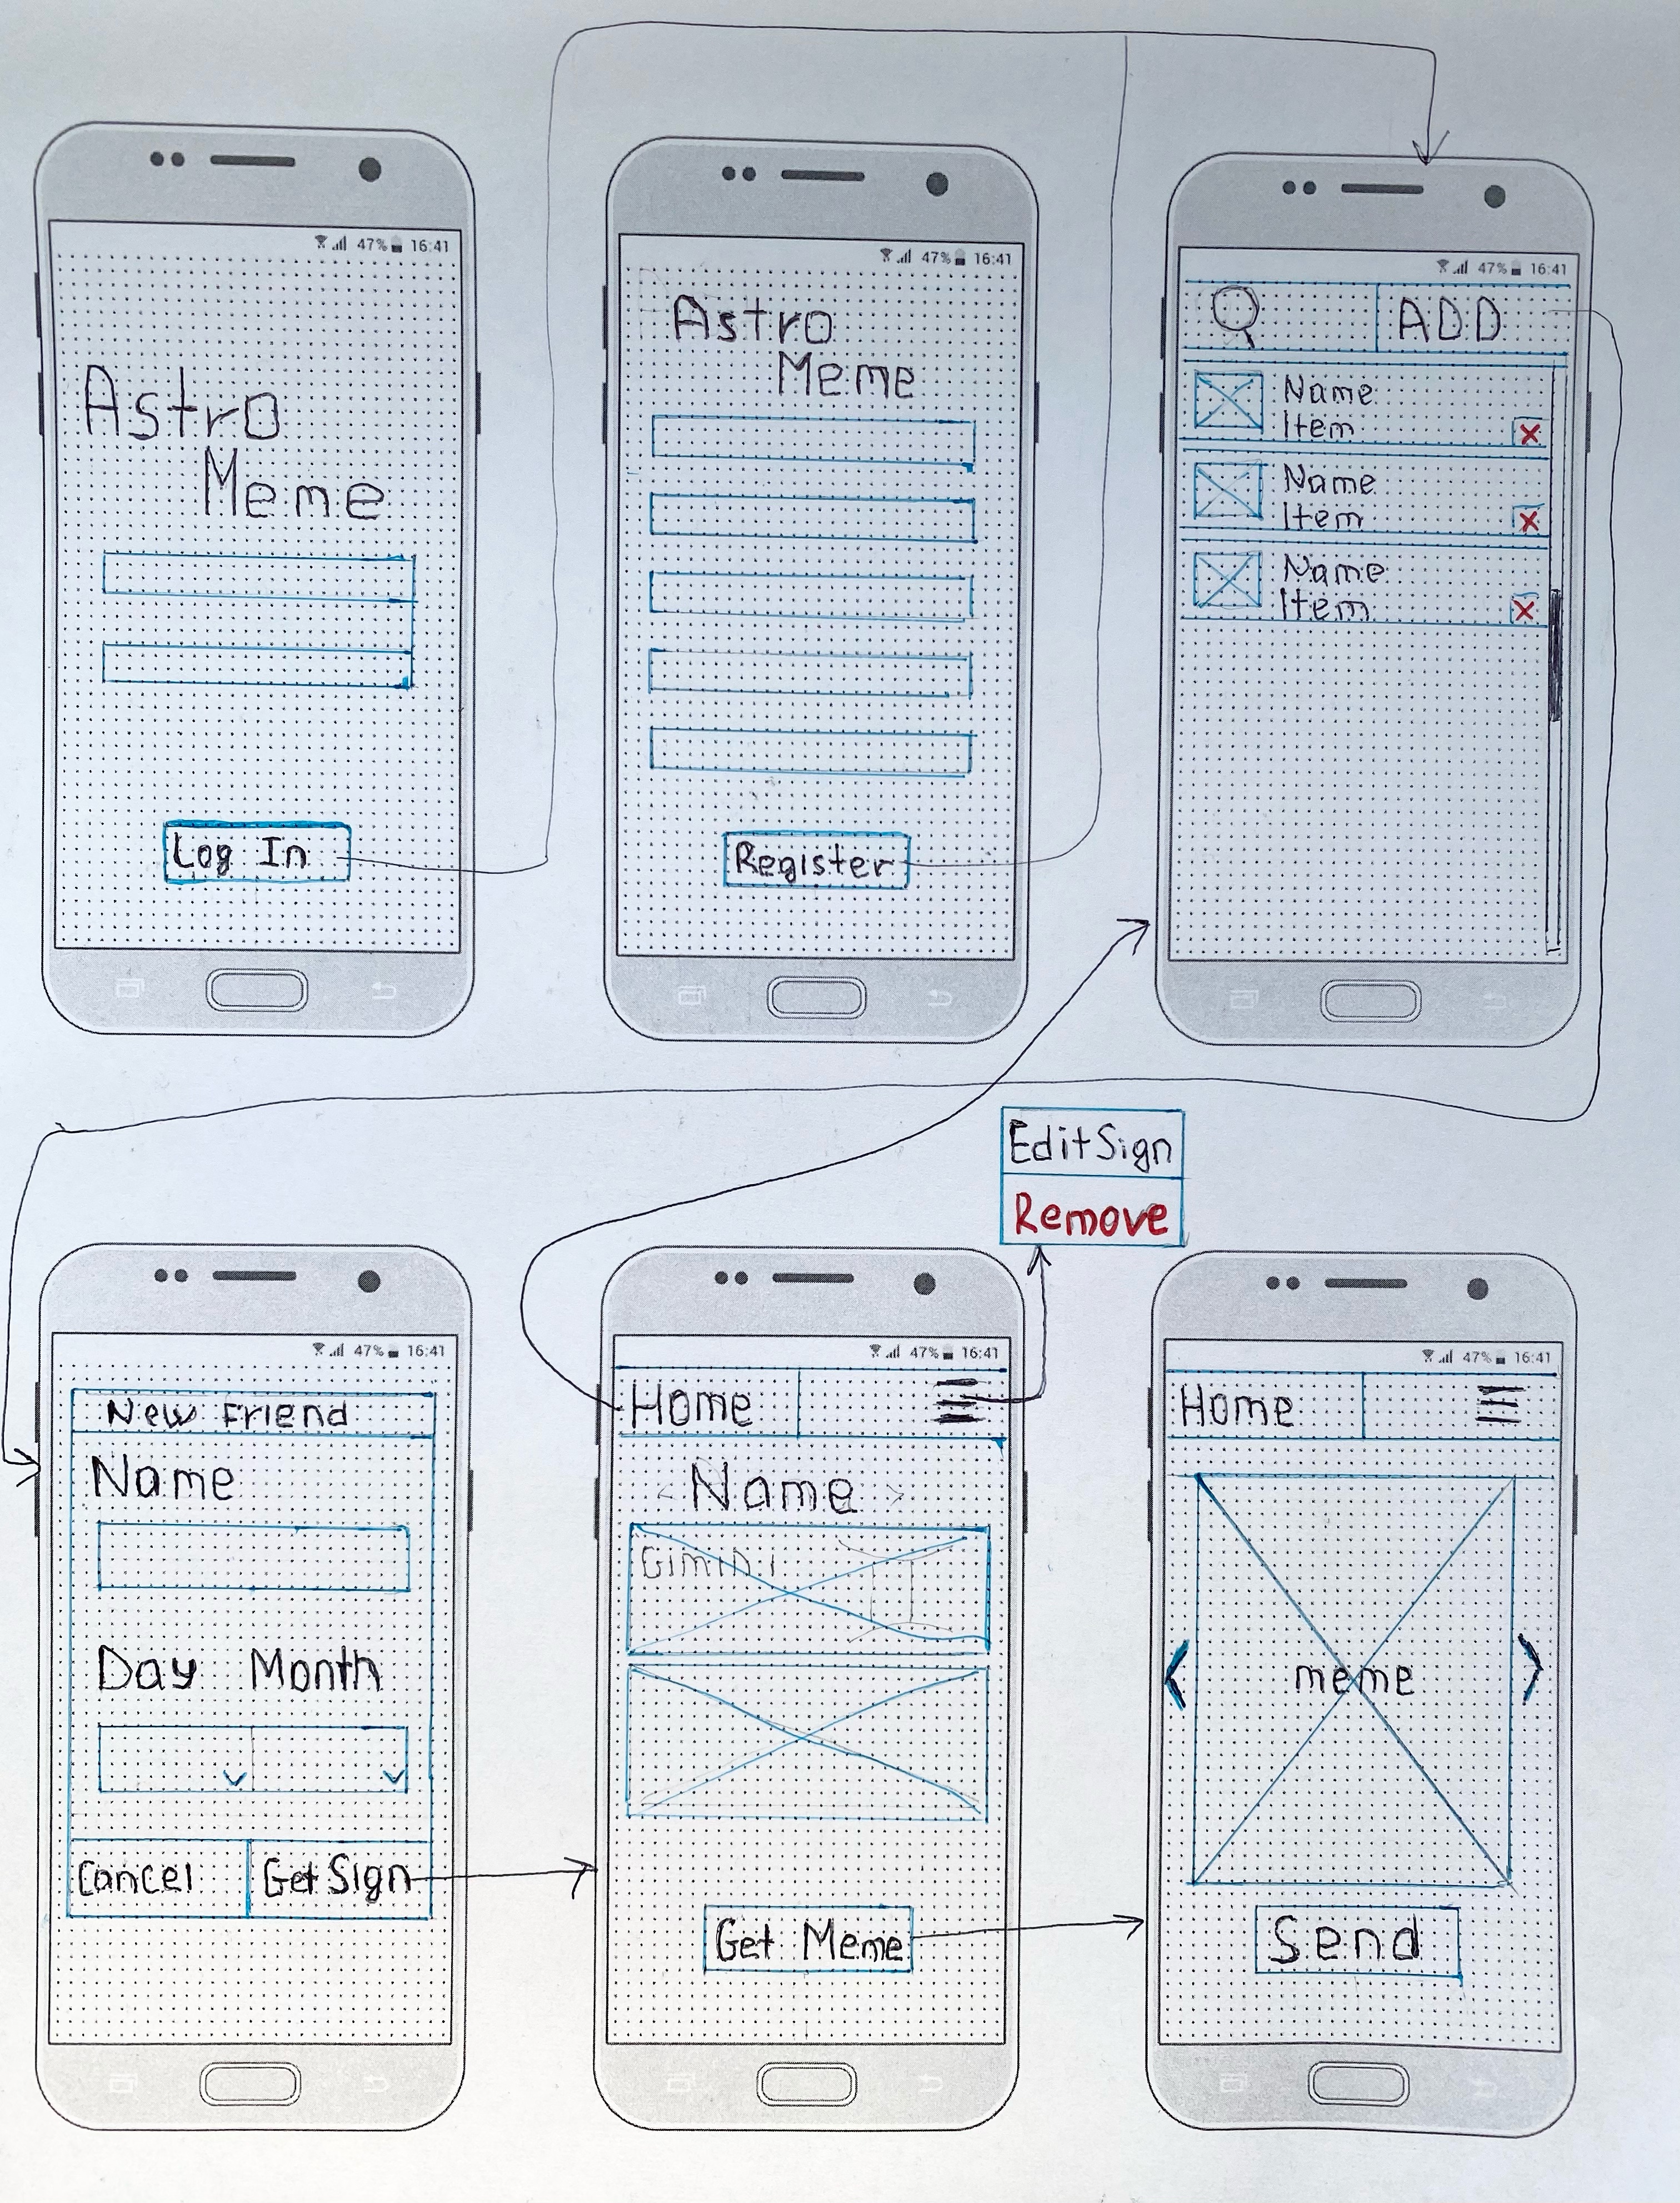 47% 16:41
Astro
Meme
Log In
47% 16:41
Astro
Meme
Register
47% 16:41
ADD
Name
Item
Name
Item
Name
Item
Edit Sign
Remove
47% 16:41
New Friend
Name
Day Month
Cancel Get Sign
47% 16:41
Home
Name
Gimini
Get Meme
47% 16:41
Home
meme
Send